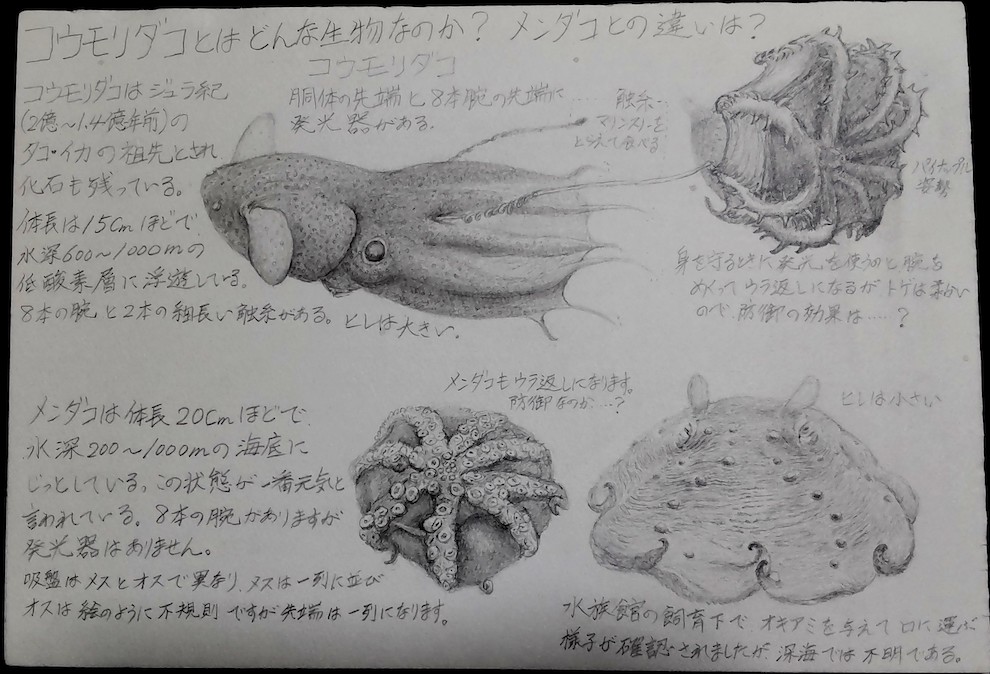 コウモリダコとはどんな生物なのか? メンダコとの違いは?
コウモリダコ
コウモリダコはジュラ紀
(2億〜1.4億年前)の
タコ・イカの祖先とされ
化石も残っている。
体長は15cmほどで
水深600〜1000mの
低酸素層に浮遊している。
8本の腕と2本の細長い触糸がある。ヒレは大きい。
胴体の先端と8本腕の先端に
発光器がある。
……触糸…
マリンスノーを
とらえて食べる
パイナップル
姿勢
身を守るときに発光を使うのと腕を
めくってウラ返しになるがトゲは柔かい
ので、防御の効果は……?
メンダコは体長20cmほどで、
水深200〜1000mの海底に
じっとしている。この状態が一番元気と
言われている。8本の腕がありますが
発光器はありません。
吸盤はメスとオスで異なり、メスは一列に並び
オスは絵のように不規則ですが先端は一列になります。
メンダコもウラ返しになります。
防御なのか…?
ヒレは小さい
水族館の飼育下で、オキアミを与えて口に運ぶ
様子が確認されましたが、深海では不明である。